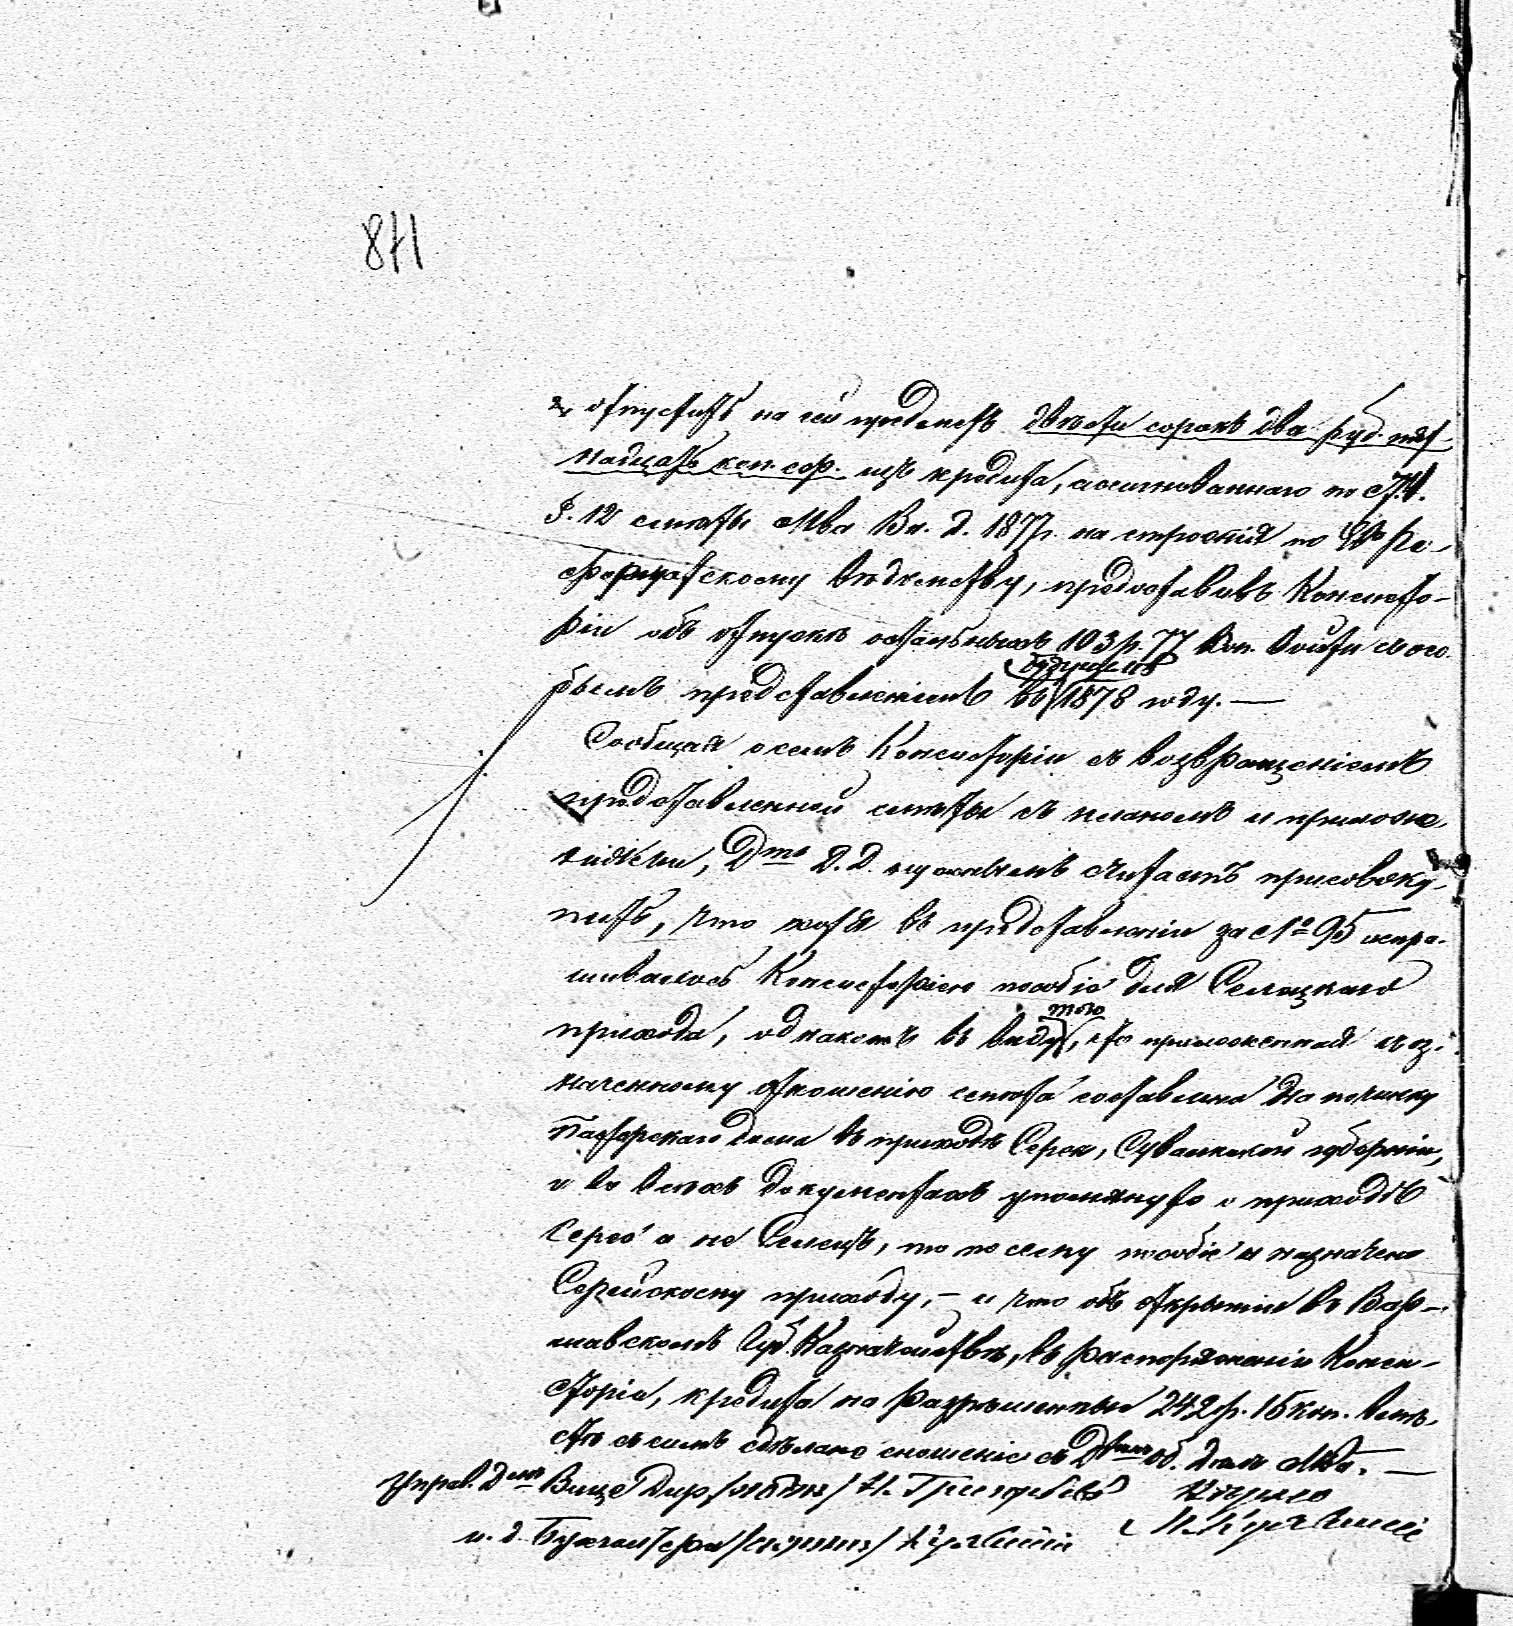 871
отпустить на сей предметъ двѣсти сорокъ два руб. пят-
надцать коп. сер. изъ кредита, ассигнованнаго по
§. 12 смѣты М-ва Вн. Д. 1877 г. на строенія по Ев. Ре-
форматскому вѣдомству, предоставивъ Консисто-
ріи объ отпускѣ остальныхъ 103 р. 77 коп. войти съ осо-
будущемъ
бымъ представленіемъ въ 1878 году. —
Сообщая о семъ Консисторіи съ возвращеніемъ
представленной смѣты съ планомъ и приложе-
ніями, Д-то Д. Д. нужнымъ считаетъ присовоку-
пить, что хотя въ представленіи за № 95 испра-
шивалось Консисторіею пособіе для Селецкаго
того
прихода, однакожъ въ виду, что приложенная къ оз-
наченному отношенію смѣта составлена на починку
Пасторскаго дома въ приходѣ Сереи, Сувалкской губерніи,
и во всѣхъ документахъ упомянуто о приходѣ
Сереѣ а не Селецъ, то посему пособіе и назначено
Серейскому приходу, – и что объ открытіи въ Вар-
шавскомъ Губ. Казначействѣ, въ распоряженіи Конси-
сторіи, кредита на разрѣшенные 242 р. 15 коп. вмѣ-
стѣ съ симъ сдѣлано сношеніе съ Д-томъ об. дѣлъ М-ва. —
Управ. Д-омъ Вице Дир. /подп./ Н. Григорьевъ
и. д. Бухгалтера /подп./